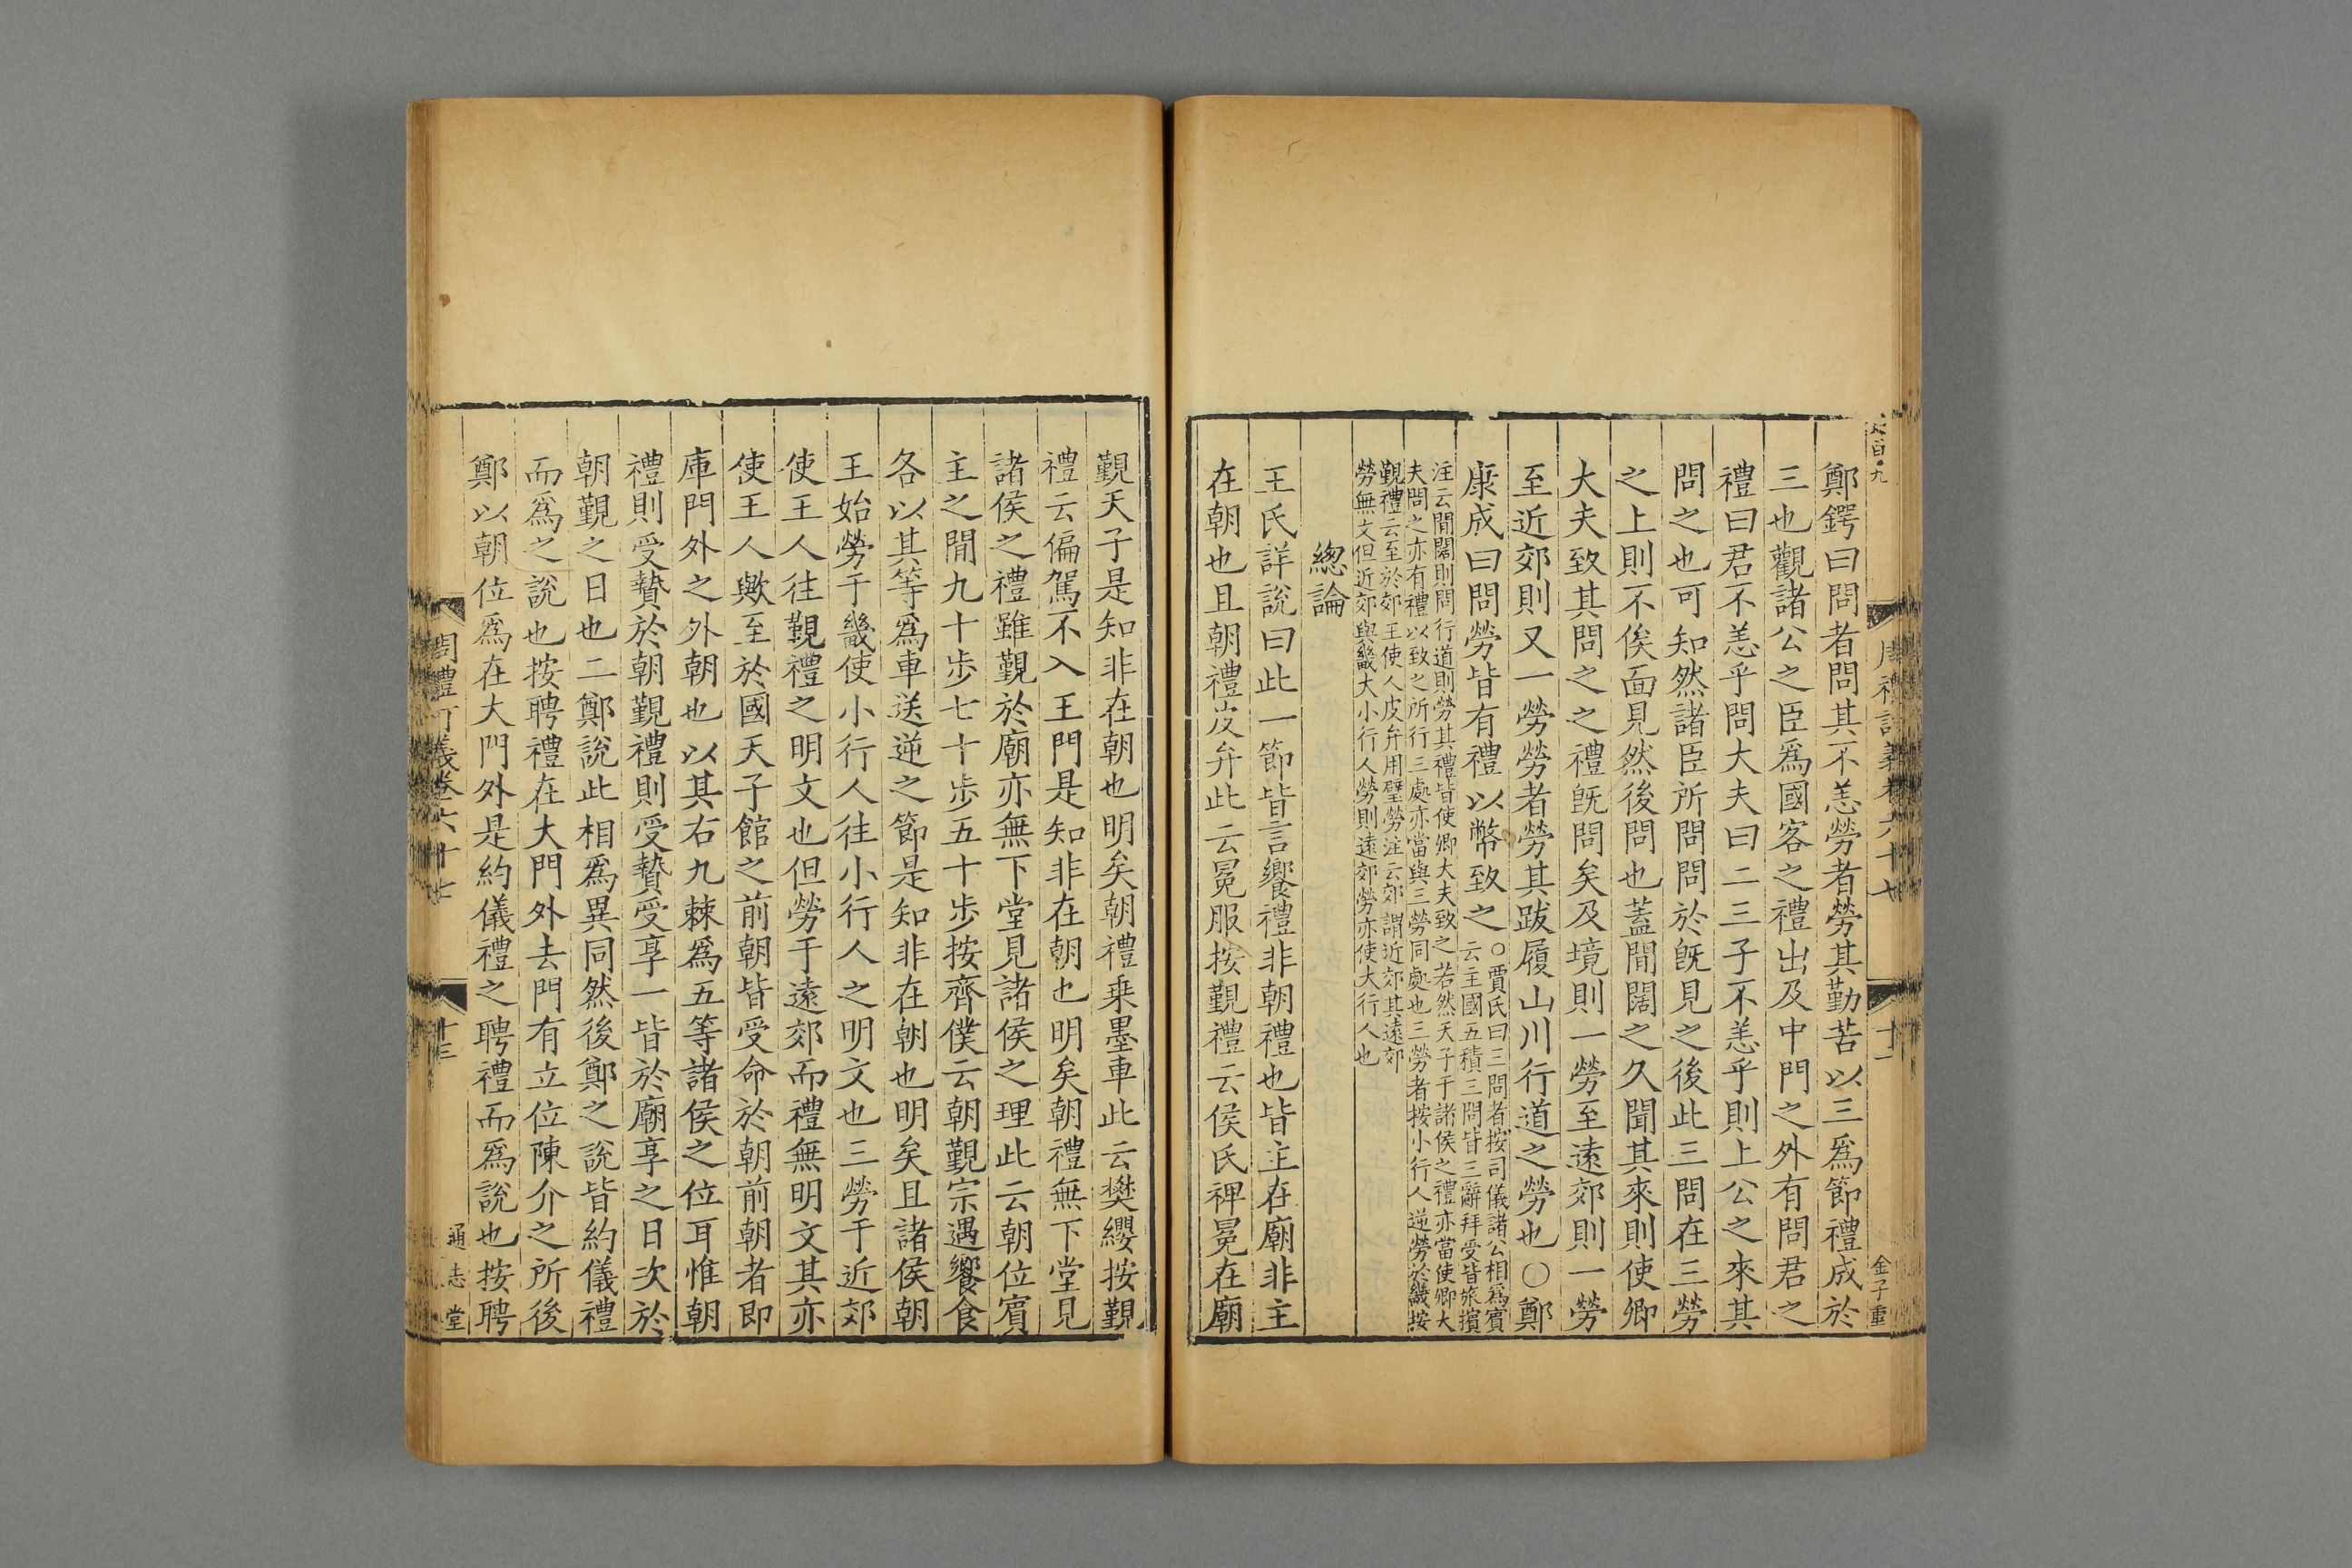 鄭鍔曰問者問其不恙勞者勞其勤苦以三爲節禮成於
三也觀諸公之臣爲國客之禮出及中門之外有問君之
禮曰君不恙乎問大夫曰二三子不恙乎則上公之來其
問之也可知然諸臣所問問於旣見之後此三問在三勞
之上則不俟面見然後問也蓋閒闊之久聞其來則使卿
大夫致其問之之禮旣問矣及境則一勞至遠郊則一勞
至近郊則又一勞勞者勞其跋履山川行道之勞也○鄭
康成曰問勞皆有禮以幣致之
○賈氏曰三問者按司儀諸公相爲賓
云主國五積三問皆三辭拜受皆旅擯
注云閒闊則問行道則勞其禮皆使卿大夫致之若然天子于諸侯之禮亦當使卿大
夫問之亦有禮以致之所行三處亦當與三勞同處也三勞者按小行人逆勞於畿按
覲禮云至於郊王使人皮弁用璧勞注云郊謂近郊其遠郊
勞無文但近郊與畿大小行人勞則遠郊勞亦使大行人也
緫論
王氏詳說曰此一節皆言饗禮非朝禮也皆主在廟非主
在朝也且朝禮皮弁此云冕服按覲禮云侯氏裨冕在廟
金子重
覲天子是知非在朝也明矣朝禮乗墨車此云樊纓按覲
禮云偏駕不入王門是知非在朝也明矣朝禮無下堂見
諸侯之禮雖覲於廟亦無下堂見諸侯之理此云朝位賓
主之閒九十步七十步五十步按齊僕云朝覲宗遇饗食
各以其等爲車送逆之節是知非在朝也明矣且諸侯朝
王始勞于畿使小行人往小行人之明文也三勞于近郊
使王人往覲禮之明文也但勞于遠郊而禮無明文其亦
使王人歟至於國天子館之前朝皆受命於朝前朝者即
庫門外之外朝也以其右九棘爲五等諸侯之位耳惟朝
禮則受贄於朝覲禮則受贄受享一皆於廟享之日次於
朝覲之日也二鄭說此相爲異同然後鄭之說皆約儀禮
而爲之說也按聘禮在大門外去門有立位陳介之所後
鄭以朝位爲在大門外是約儀禮之聘禮而爲說也按聘
周禮訂義卷六十七
十三
通志堂